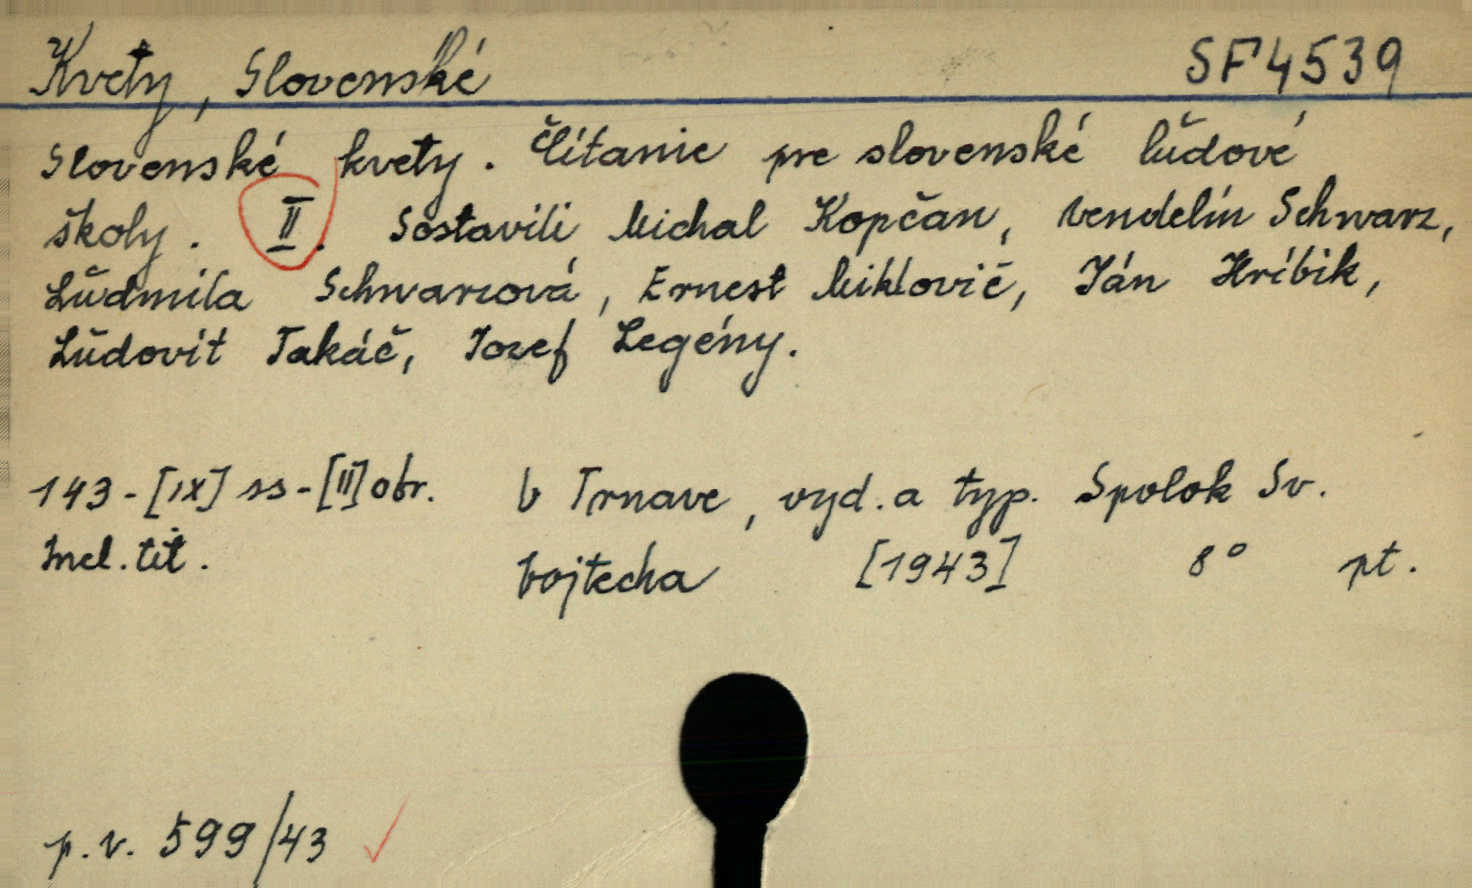 Kvety, Slovenské SF4539
Slovenské kvety. Čítanie pre slovenské ľudové
školy. II. Sostavili Michal Kopčan, Vendelín Schwarz,
Ľudmila Schwarzová, Ernest Miklovič, Ján Hríbik,
Ľudovít Takáč, Jozef Legény.
143-[IX] ss-[II] obr. V Trnave, vyd. a typ. Spolok Sv.
Incl. tit. Vojtecha [1943] 8° pt.
p. v. 599/43